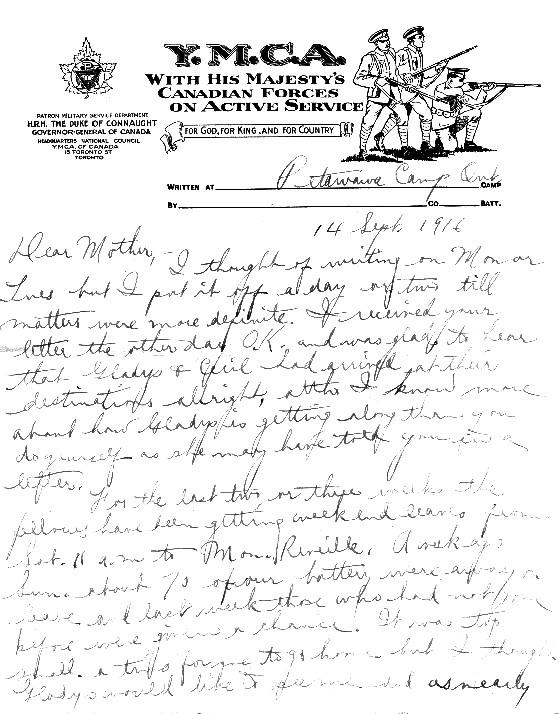 Y.M.C.A.
WITH HIS MAJESTY'S
CANADIAN FORCES
ON ACTIVE SERVICE
PATRON MILITARY SERVICE DEPARTMENT
H.R.H. THE DUKE OF CONNAUGHT
GOVERNOR-GENERAL OF CANADA
HEADQUARTERS NATIONAL COUNCIL
Y.M.C.A. OF CANADA
15 TORONTO ST
TORONTO
FOR GOD, FOR KING, AND FOR COUNTRY
WRITTEN AT Petawawa Camp Ont CAMP
BY CO. BATT.
14 Sept 1916
Dear Mother,—
I thought of writing on Mon or
Tues but I put it off a day or two till
matters were more definite. I received your
letter the other day O.K. and was glad to hear
that Gladys & Cecil had arrived at their
destinations alright, altho I know more
about how Gladys is getting along than you
do yourself as she may have told you in a
letter.
For the last two or three weeks the
fellows have been getting week end leaves from
Sat. 11 a.m to Mon. Reveille. A week ago
Sun. about 70 of our battery were away on
leave and last week those who had not gone
before were given a chance. It was too
small a trip for me to go home but I thought
Gladys would like to see me and as nearly